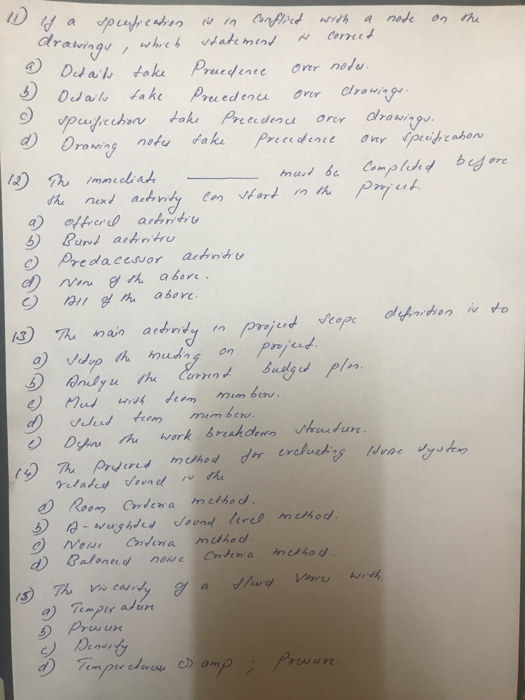 11) If a specification is in Conflict with a note on the
drawings, which statement is correct
a) Details take Precedence over notes.
b) Details take Precedence over drawings.
c) specification take Precedence over drawings.
d) Drawing notes take Precedence over specification
12) The immediate ________ must be Completed before
the next activity can start in the project.
a) official activities
b) activities
c) Predacessor activities
d) None of the above.
e) All of the above.
13) The main activity in project scope definition is to
a) Setup the meeting on project.
b) Analyze the Current budget plan.
c) Meet with team members.
d) select team members.
e) Define the work breakdown structure.
14) The Prefered method for evaluating HVAC system
related sound is the
a) Room Criteria method.
b) A-weighted sound level method.
c) Noise Criteria method.
d) Balanced noise Criteria method.
15) The Viscosity of a fluid Varies with,
a) Temperature
b) Pressure
c) Density
d) Temperature amp; Pressure.